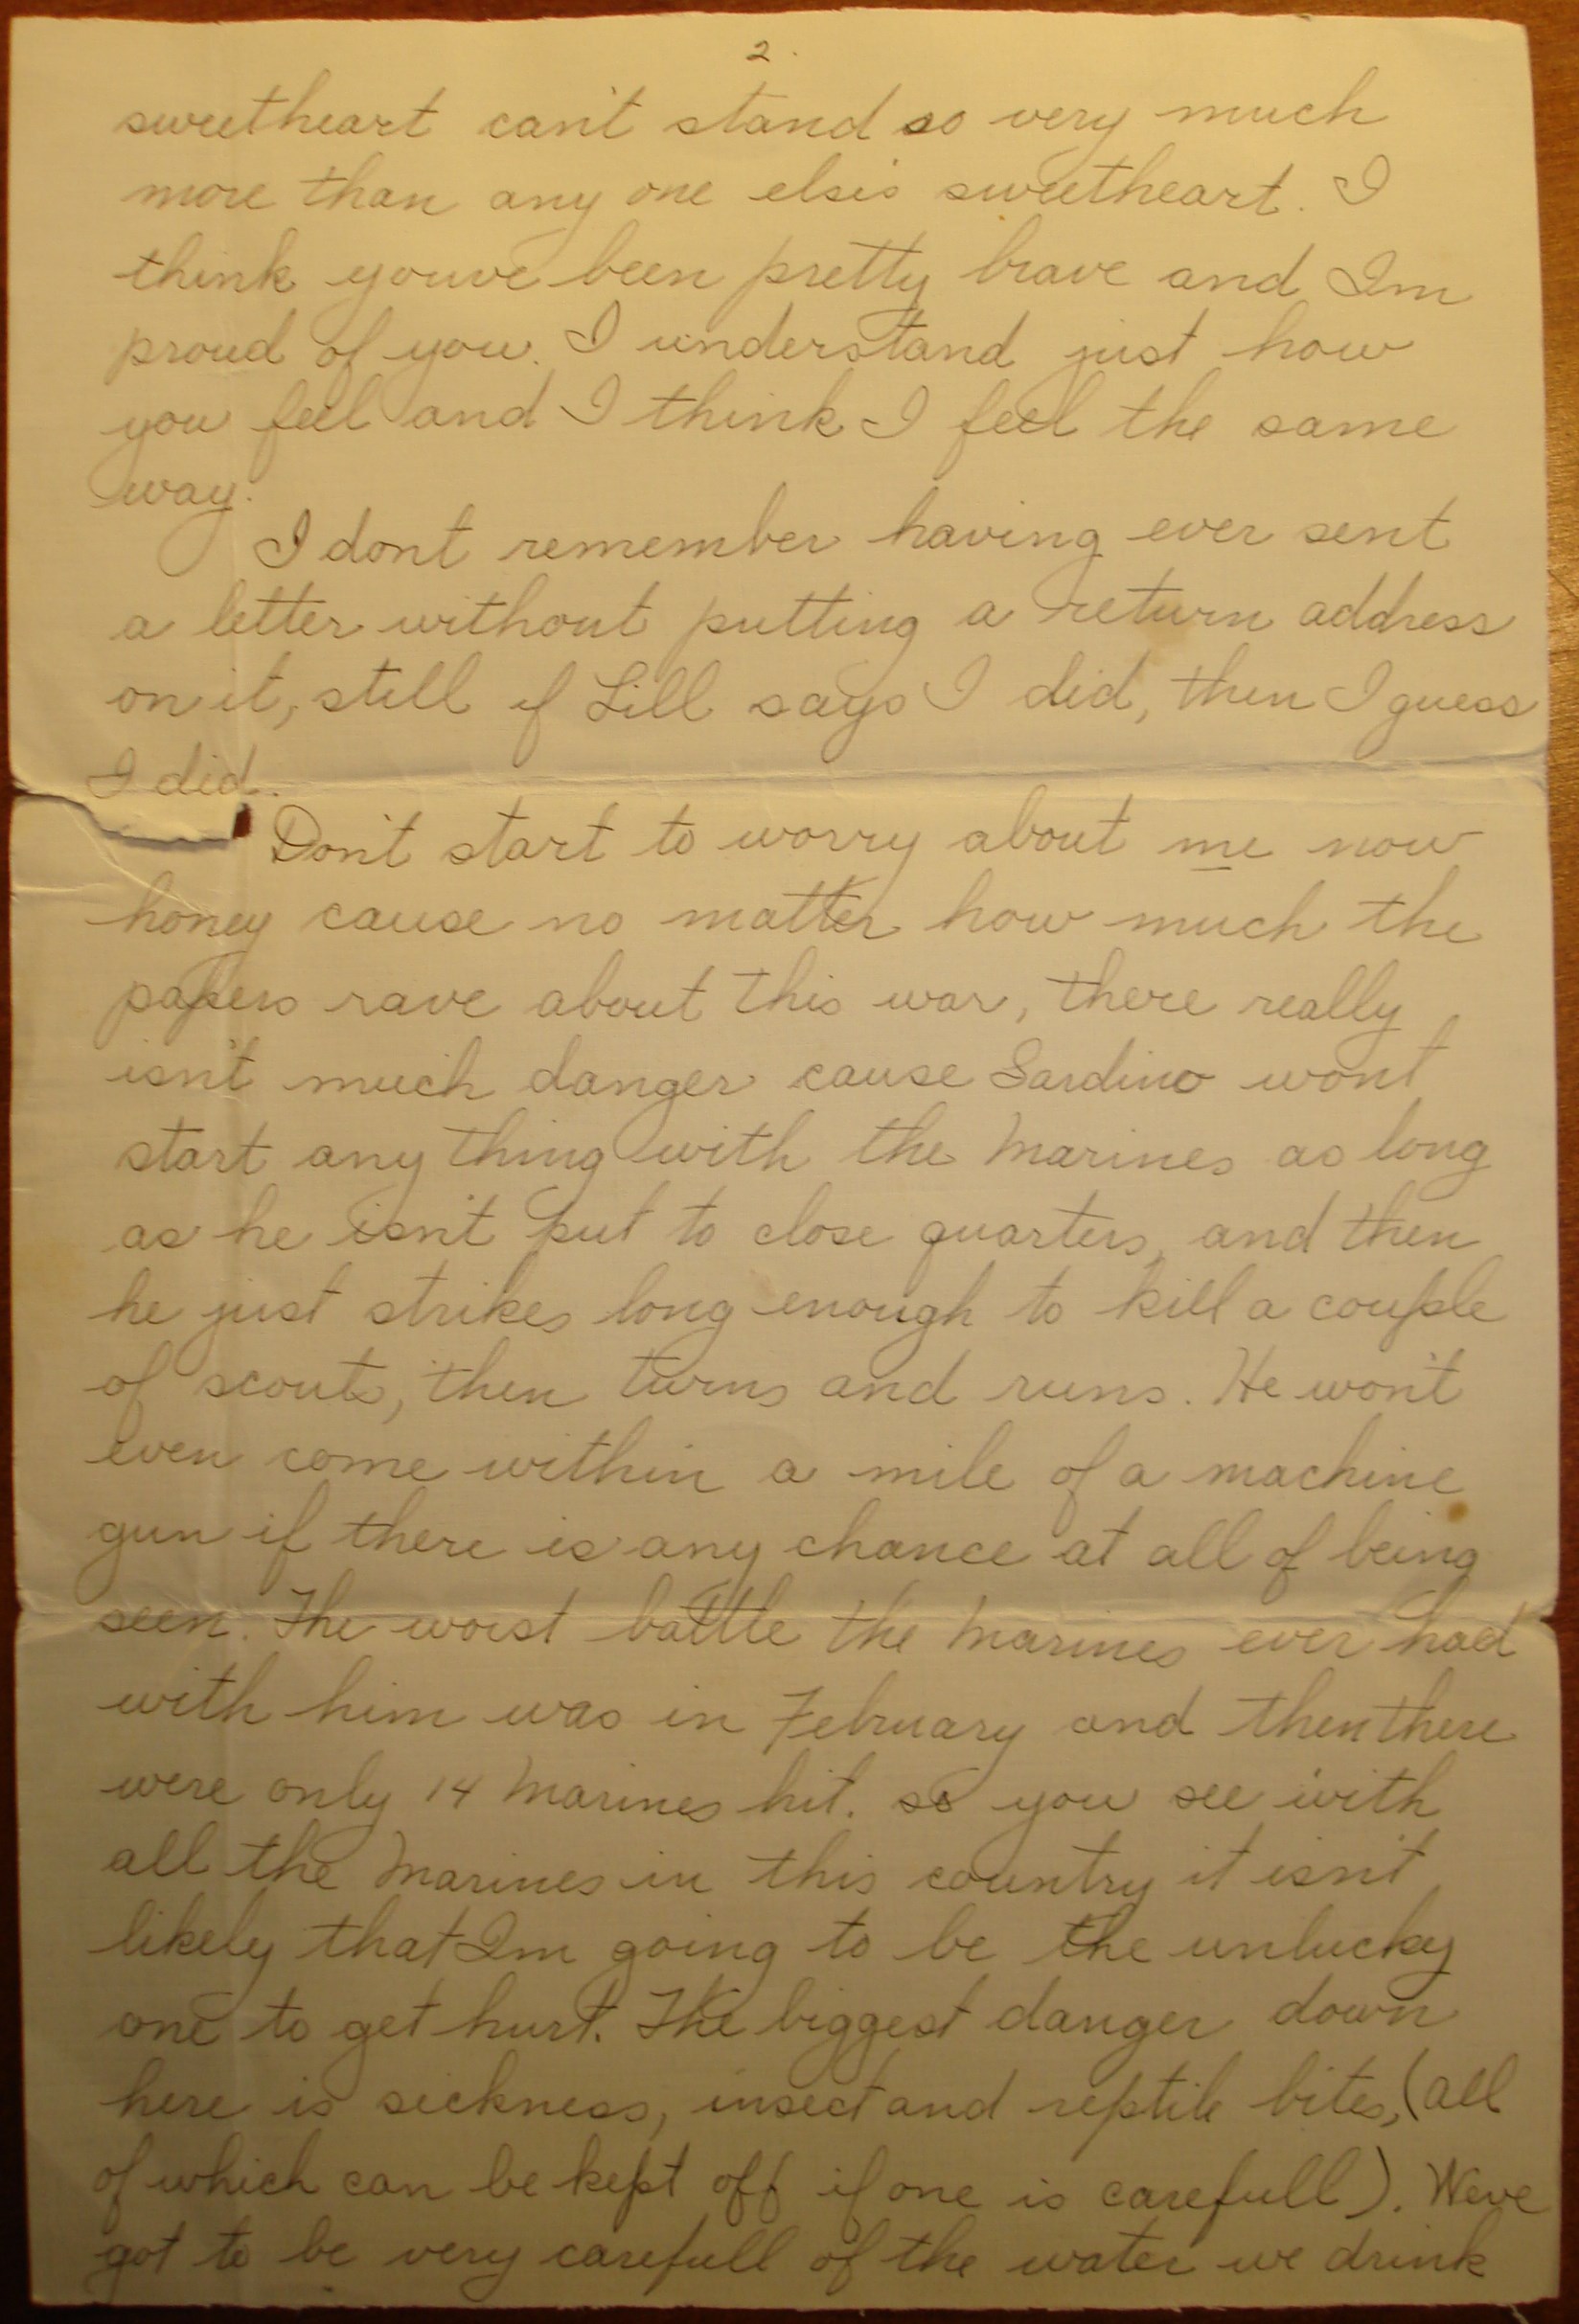 2.
sweetheart can't stand so very much
more than any one else's sweetheart. I
think youve been pretty brave and Im
proud of you. I understand just how
you feel and I think I feel the same
way.
I dont remember having ever sent
a letter without putting a return address
on it, still if Lill says I did, then I guess
I did.
Don't start to worry about me now
honey cause no matter how much the
papers rave about this war, there really
isn't much danger cause Sardino wont
start any thing with the Marines as long
as he isn't put to close quarters, and then
he just strikes long enough to kill a couple
of scouts, then turns and runs. He won't
even come within a mile of a machine
gun if there is any chance at all of being
seen. The worst battle the Marines ever had
with him was in February and then there
were only 14 Marines hit. so you see with
all the Marines in this country it isn't
likely that Im going to be the unlucky
one to get hurt. The biggest danger down
here is sickness, insect and reptile bites, (all
of which can be kept off if one is carefull). Weve
got to be very carefull of the water we drink